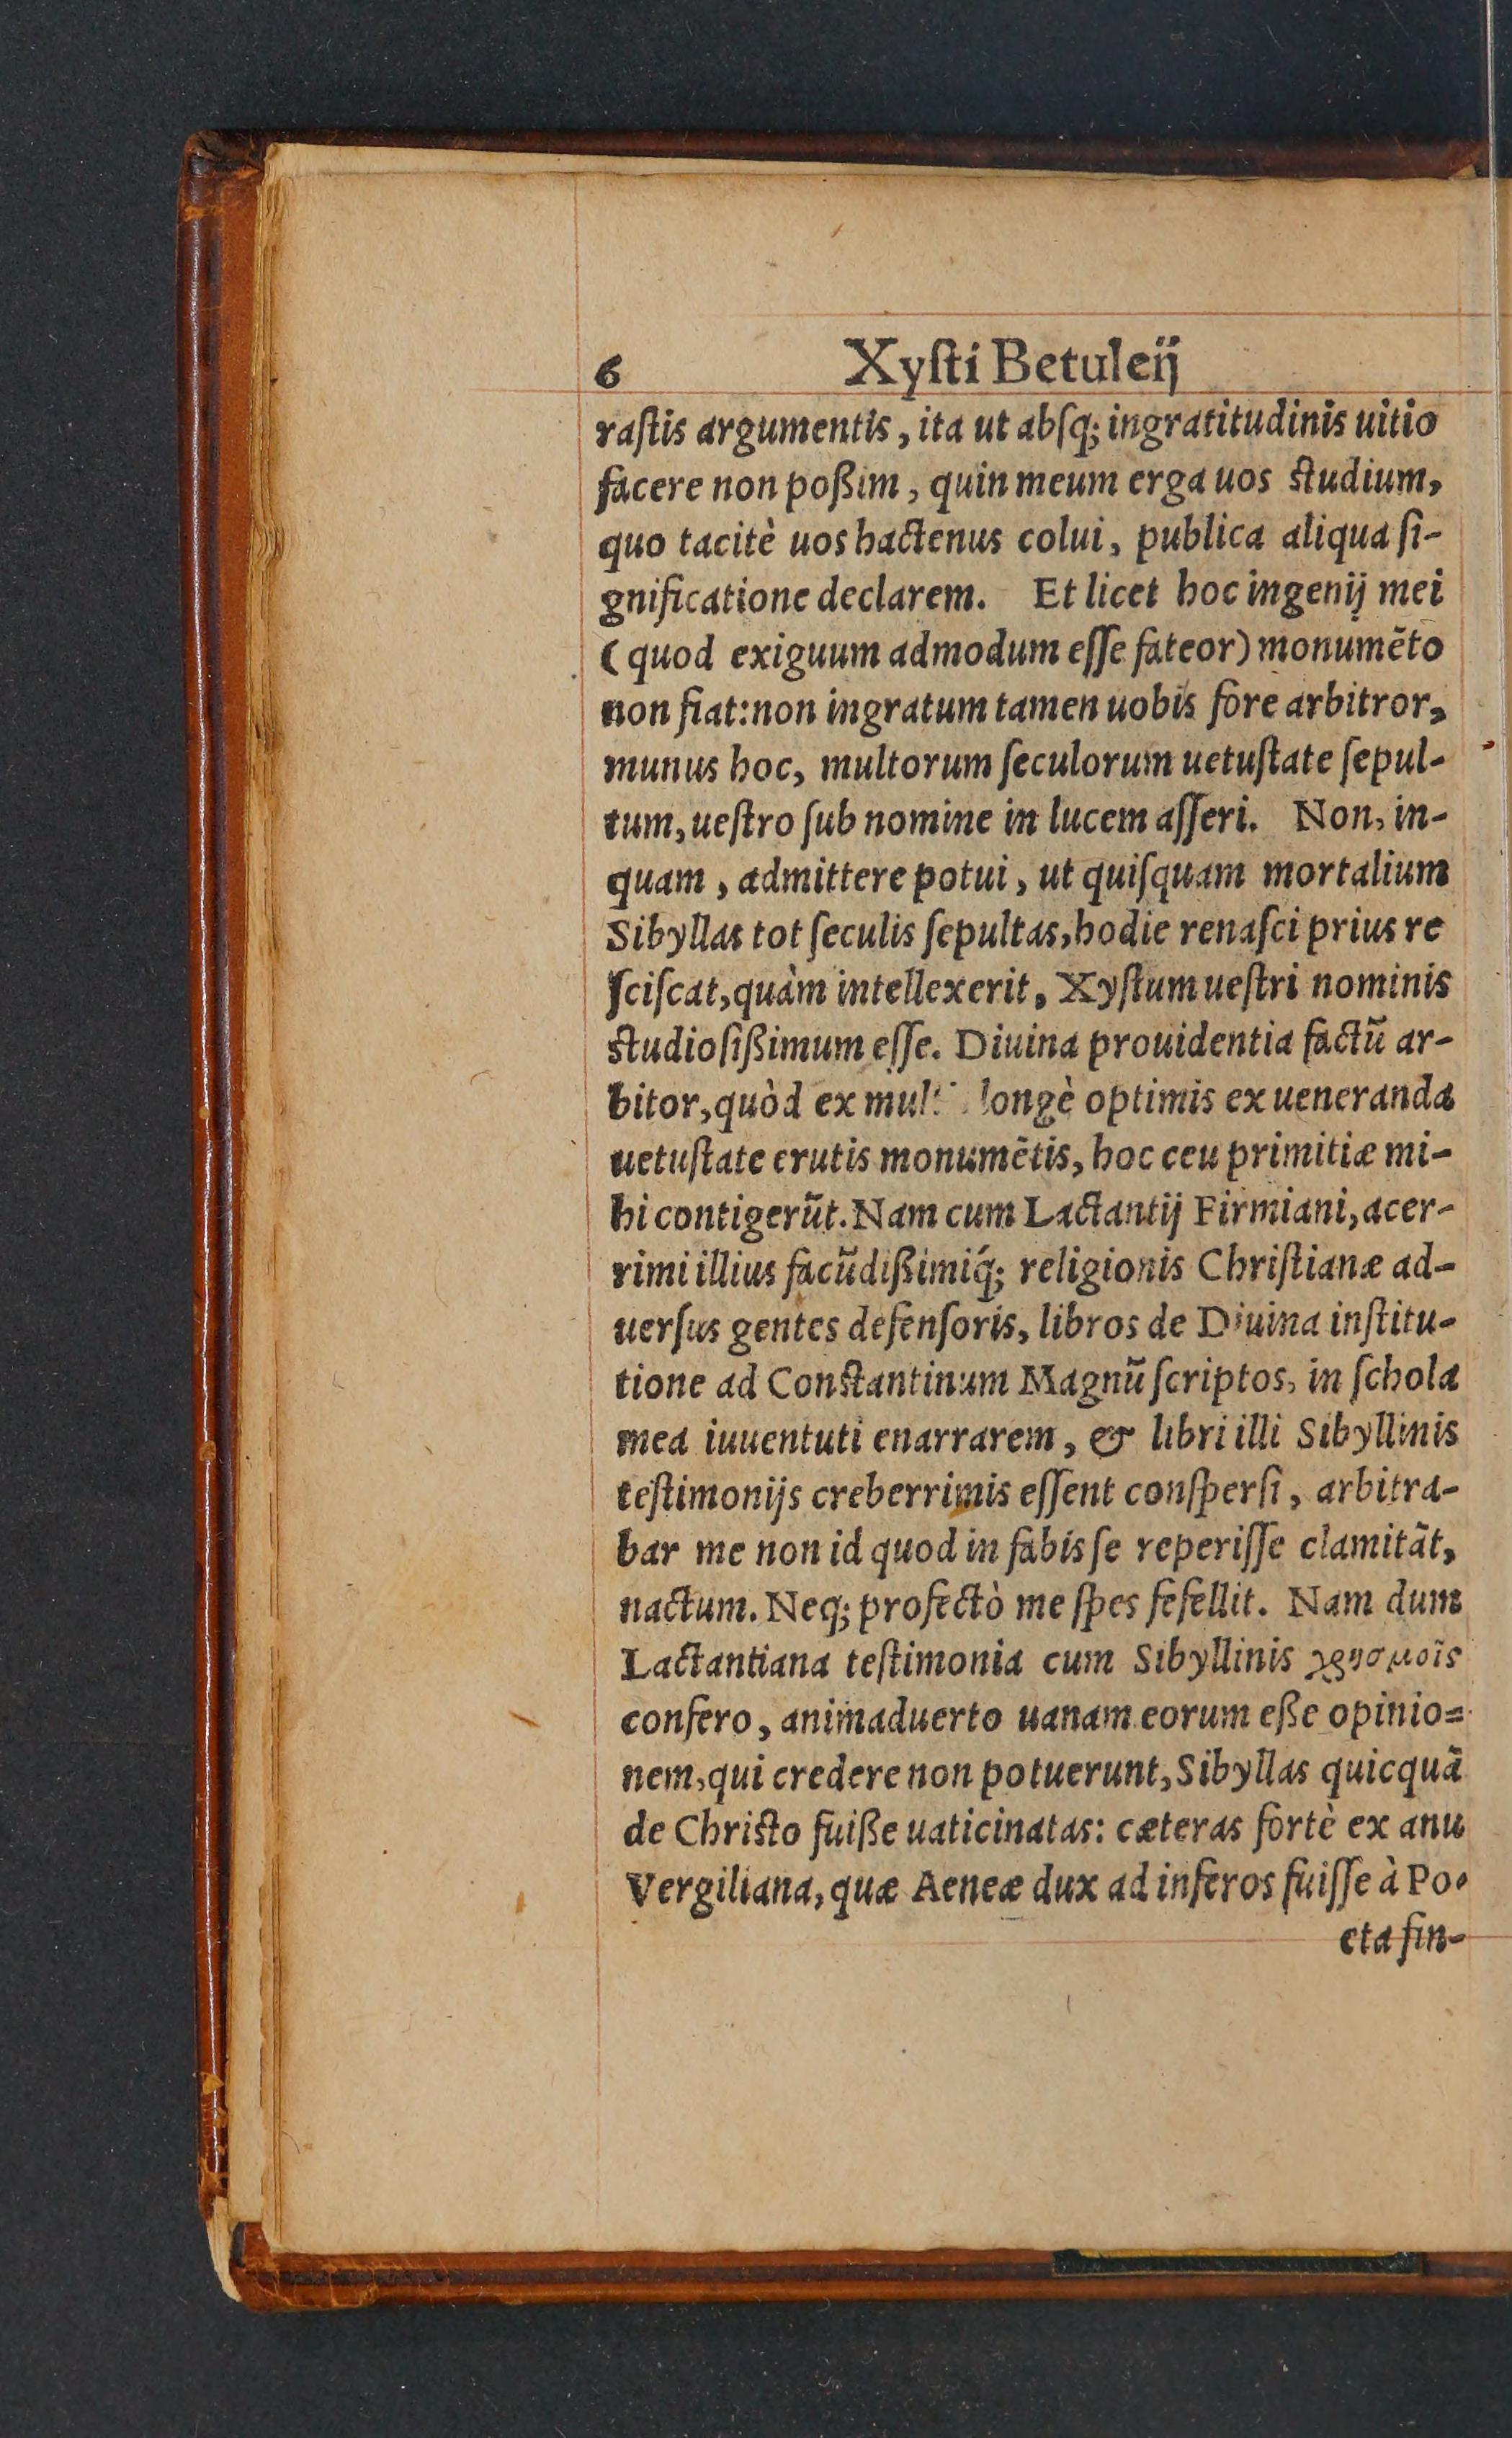 6 Xyſti Betuleij
raſtis argumentis, ita ut abſq; ingratitudinis uitio
facere non poßim, quin meum erga uos ſtudium,
quo tacitè uos hactenus colui, publica aliqua ſi-
gnificatione declarem. Et licet hoc ingenij mei
(quod exiguum admodum eſſe fateor) monumẽto
non fiat: non ingratum tamen uobis fore arbitror,
munus hoc, multorum ſeculorum uetuſtate ſepul-
tum, ueſtro ſub nomine in lucem aſſeri. Non, in-
quam, admittere potui, ut quiſquam mortalium
Sibyllas tot ſeculis ſepultas, hodie renaſci prius re
ſciſcat, quàm intellexerit, Xyſtum ueſtri nominis
ſtudioſißimum eſſe. Diuina prouidentia factũ ar-
bitor, quòd ex longè optimis ex ueneranda
uetuſtate erutis monumẽtis, hoc ceu primitiæ mi-
hi contigerũt. Nam cum Lactantij Firmiani, acer-
rimi illius facũdißimiq́; religionis Chriſtianæ ad-
uerſus gentes defenſoris, libros de Diuina inſtitu-
tione ad Conſtantinum Magnũ ſcriptos, in ſchola
mea iuuentuti enarrarem, & libri illi Sibyllinis
teſtimonijs creberrimis eſſent conſperſi, arbitra-
bar me non id quod in fabis ſe reperiſſe clamitãt,
nactum. Neq; profectò me ſpes fefellit. Nam dum
Lactantiana teſtimonia cum Sibyllinis χρησμοῖς
confero, animaduerto uanam eorum eße opinio=
nem, qui credere non potuerunt, Sibyllas quicquã
de Chriſto fuiße uaticinatas: cæteras fortè ex anu
Vergiliana, quæ Aeneæ dux ad inferos fuiſſe à Po-
eta fin-